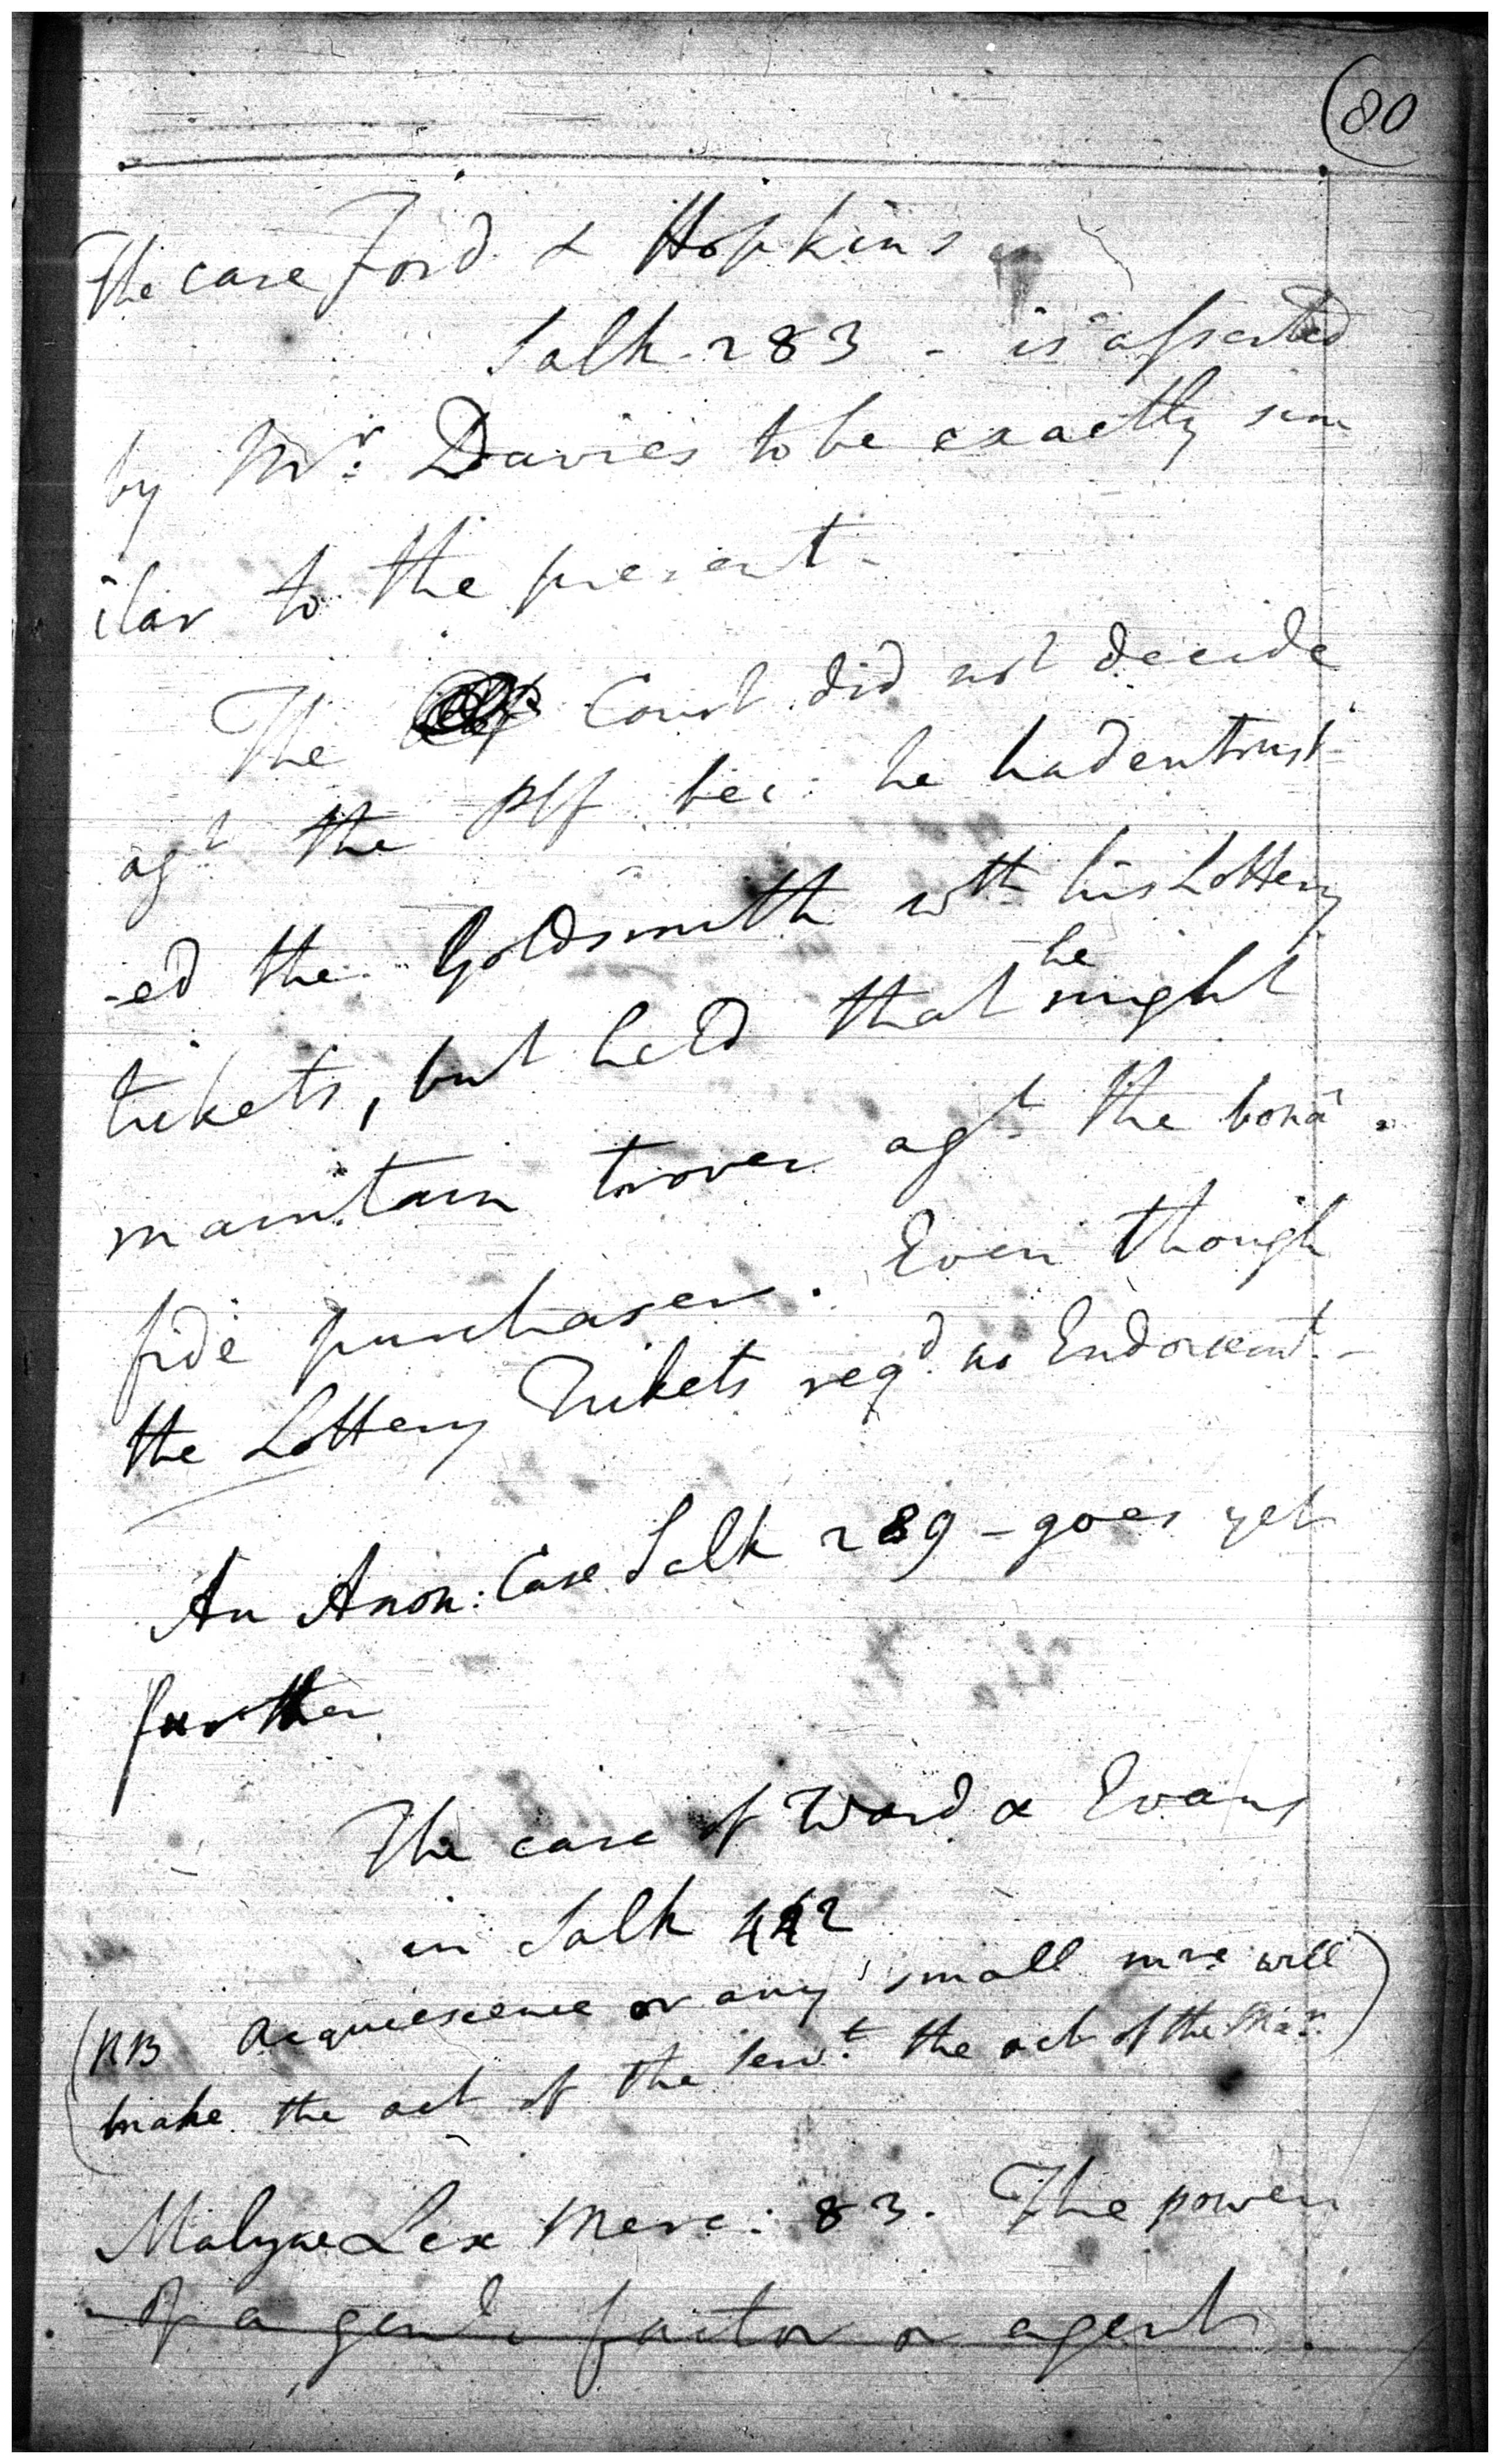 (80
The case Ford & Hopkins
Salk. 283 - is asserted
by Mr. Davies to be exactly sim
ilar to the present -
The Court did not decide
agt the plf bec: he had entrust-
-ed the Goldsmith wth his Lottery
tickets, but held that he might
maintain trover agt the bonâ
fide purchaser. Even though
the Lottery Tickets reqd no Endorsemt. -
An Anon: Case Salk 289 - goes yet
further
The case of Ward & Evans
in Salk 442
(NB acquiescence or any small mre will
make the act of the servt. the act of the Mar.)
Malyne Lex Merc: 83. The power
of a genl factor or agent.